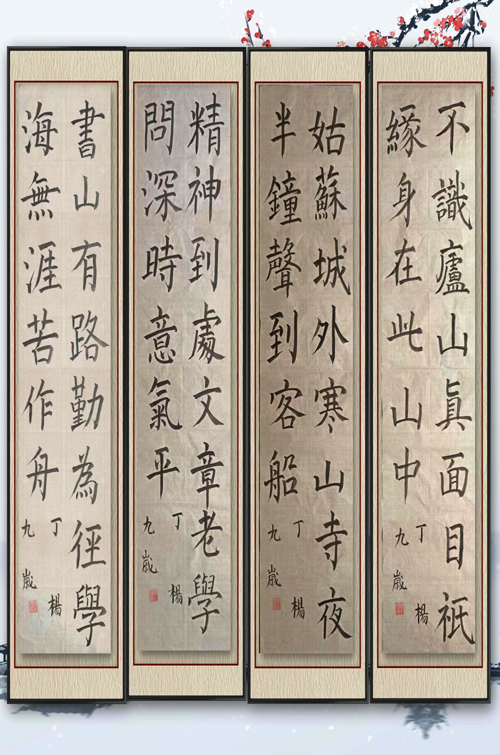 不識廬山眞面目祇
緣身在此山中
丁楊
九歲
姑蘇城外寒山寺夜
半鐘聲到客船
丁楊
九歲
精神到處文章老學
問深時意氣平
丁楊
九歲
書山有路勤為徑學
海無涯苦作舟
丁楊
九歲